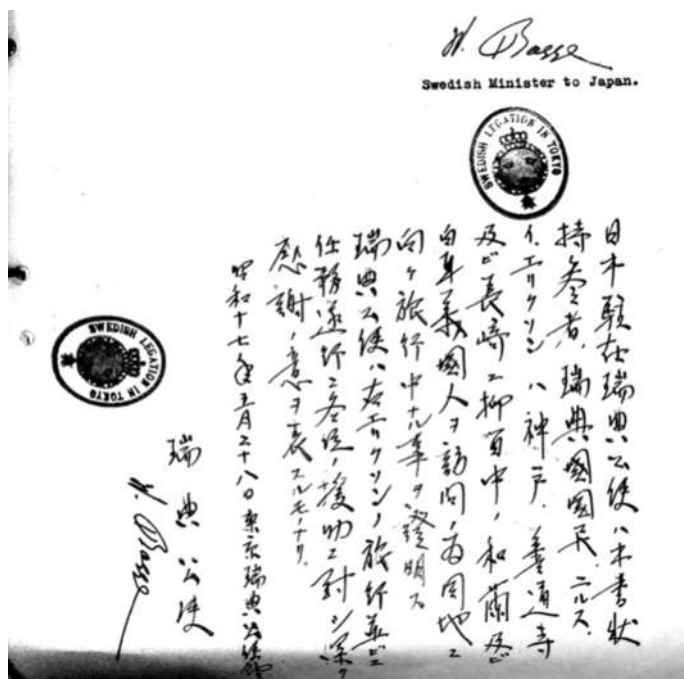 W. Bagge
Swedish Minister to Japan.
SWEDISH LEGATION IN TOKYO
日本駐在瑞典公使ハ本書状
持参者、瑞典國國民、ニルス、
イ、エリクソン ハ神戸、善通寺
及ビ長崎ニ抑留中ノ和蘭及ビ
白耳義國人ヲ訪問ノ為同地ニ
向ケ旅行中ナル事ヲ證明ス
瑞典公使ハ右エリクソンノ旅行並ビニ
任務遂行ニ参从ノ援助ニ対シ深ク
感謝ノ意ヲ表スルモノナリ
昭和十七年五月二十八日 東京瑞典公使館
瑞典公使
W. Bagge
SWEDISH LEGATION IN TOKYO